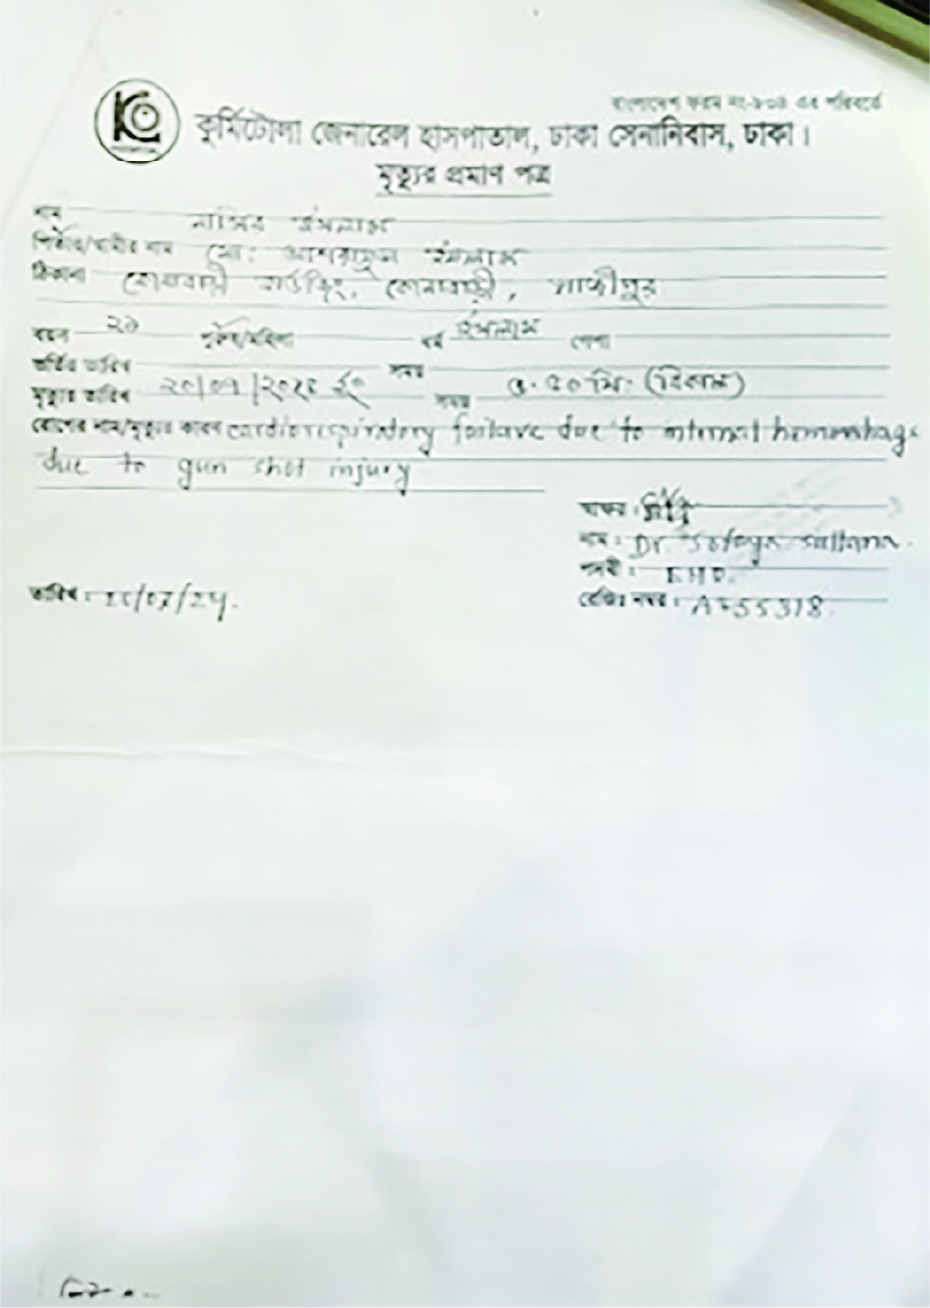 বাংলাদেশ ফরম নং-৮০৪ এর পরিবর্তে
কুর্মিটোলা জেনারেল হাসপাতাল, ঢাকা সেনানিবাস, ঢাকা।
মৃত্যুর প্রমাণ পত্র
নাম নাসির ইসলাম
পিতার/স্বামীর নাম মো: আশরাফুল ইসলাম
ঠিকানা কোনাবাড়ী, গাজীপুর
বয়স ২১ পুরুষ/মহিলা ধর্ম ইসলাম পেশা
ভর্তির তারিখ সময়
মৃত্যুর তারিখ ২০/০৭/২০২৪ ইং সময় ৫.৫০ মি: (বিকাল)
রোগের নাম/মৃত্যুর কারণ cardiorespiratory failure due to internal hemorrhage
due to gun shot injury
স্বাক্ষর :
নাম : Dr. Sultana.
পদবী : EMO.
তারিখ : /07/24.
রেজিঃ নম্বর : A-55318.